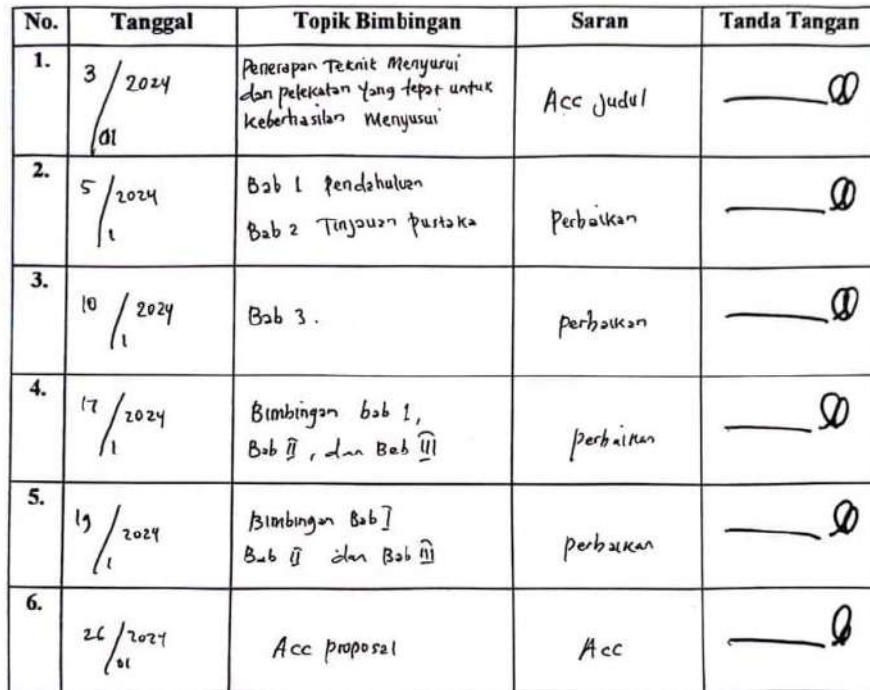 No. Tanggal Topik Bimbingan Saran Tanda Tangan
1. 3/01 2024 Penerapan Teknik Menyusui
dan pelekatan yang tepat untuk
keberhasilan Menyusui
Acc judul
2. 5/1 2024 Bab 1 Pendahuluan
Bab 2 Tinjauan Pustaka
Perbaikan
3. 10/1 2024 Bab 3. perbaikan
4. 17/1 2024 Bimbingan bab 1,
Bab II, dan Bab III
perbaikan
5. 19/1 2024 Bimbingan Bab I
Bab II dan Bab III
perbaikan
6. 26/01 2024 Acc proposal Acc